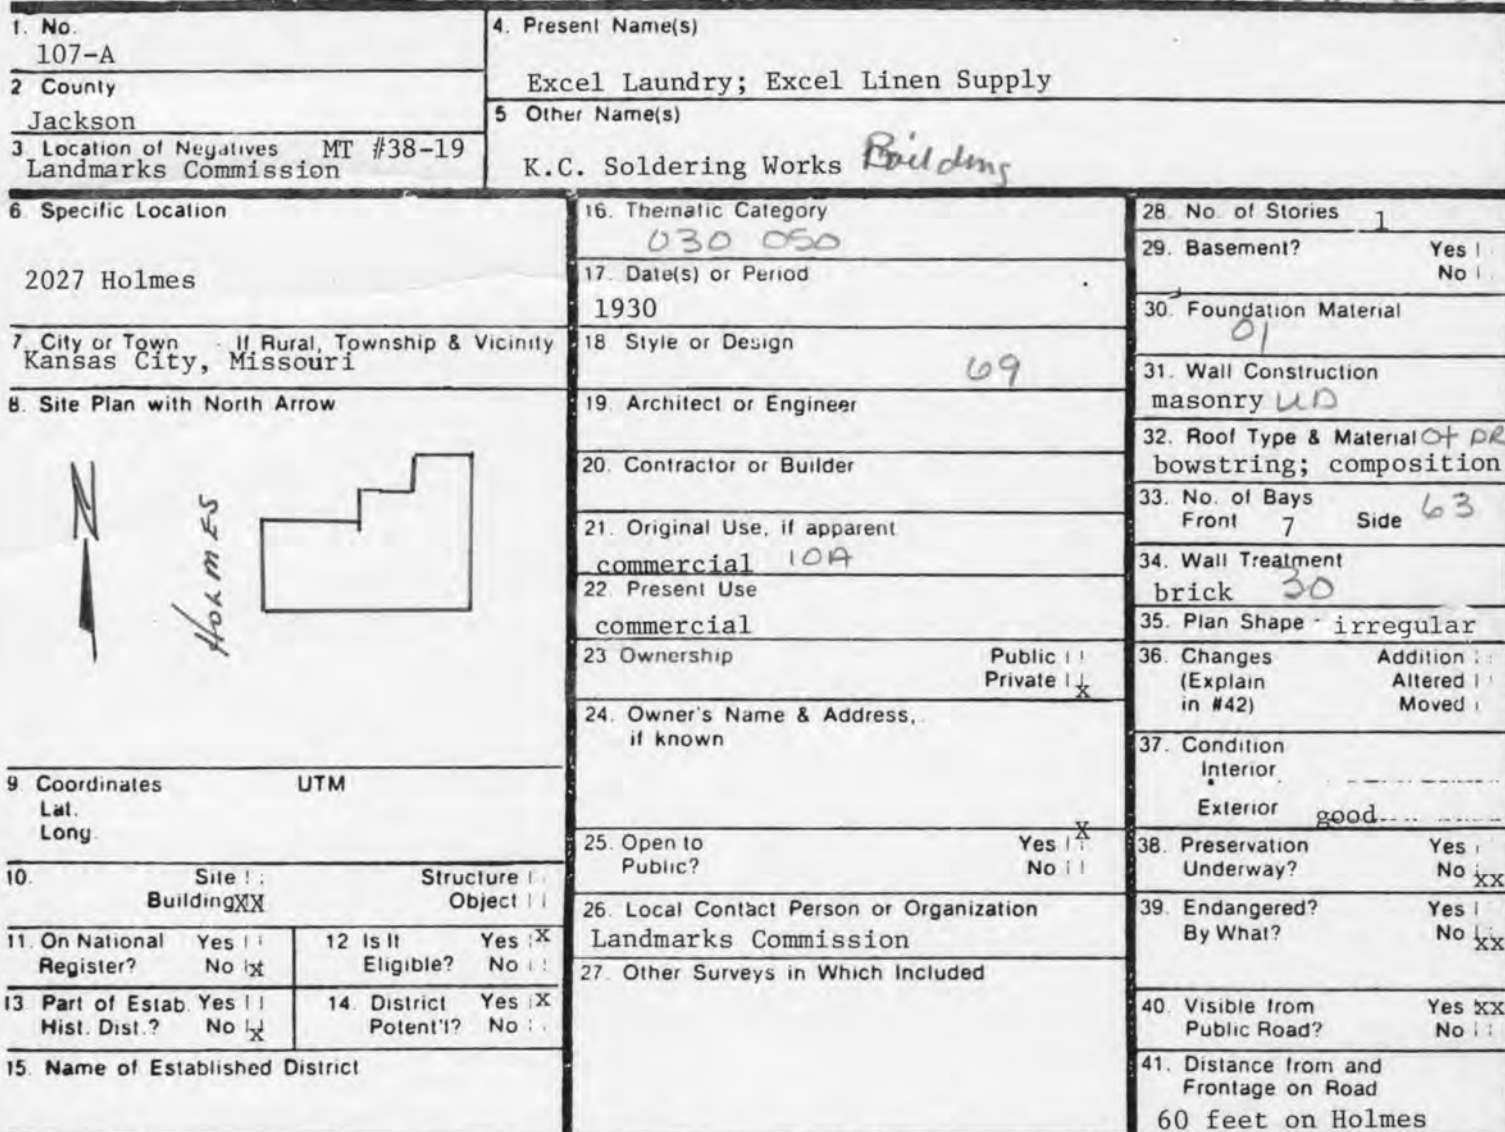 1. No.
107-A
2 County
Jackson
3 Location of Negatives MT #38-19
Landmarks Commission
4. Present Name(s)
Excel Laundry; Excel Linen Supply
5 Other Name(s)
K.C. Soldering Works Building
6. Specific Location
2027 Holmes
7. City or Town If Rural, Township & Vicinity
Kansas City, Missouri
8. Site Plan with North Arrow
N
HOLMES
9. Coordinates UTM
Lat.
Long.
10. Site Structure
Building XX Object
11. On National Yes
Register? No X
12 Is It Yes X
Eligible? No
13 Part of Estab. Yes
Hist. Dist.? No X
14. District Yes X
Potent'l? No
15. Name of Established District
16. Thematic Category
030 050
17. Date(s) or Period
1930
18. Style or Design
69
19. Architect or Engineer
20. Contractor or Builder
21. Original Use, if apparent
commercial 10A
22. Present Use
commercial
23 Ownership Public
Private X
24. Owner's Name & Address,
if known
25. Open to Yes X
Public? No
26. Local Contact Person or Organization
Landmarks Commission
27. Other Surveys in Which Included
28. No. of Stories 1
29. Basement? Yes
No
30. Foundation Material
01
31. Wall Construction
masonry UD
32. Roof Type & Material Ot DR
bowstring; composition
33. No. of Bays
Front 7 Side 63
34. Wall Treatment
brick 30
35. Plan Shape - irregular
36. Changes Addition
(Explain Altered
in #42) Moved
37. Condition
Interior
Exterior good
38. Preservation Yes
Underway? No XX
39. Endangered? Yes
By What? No XX
40. Visible from Yes XX
Public Road? No
41. Distance from and
Frontage on Road
60 feet on Holmes